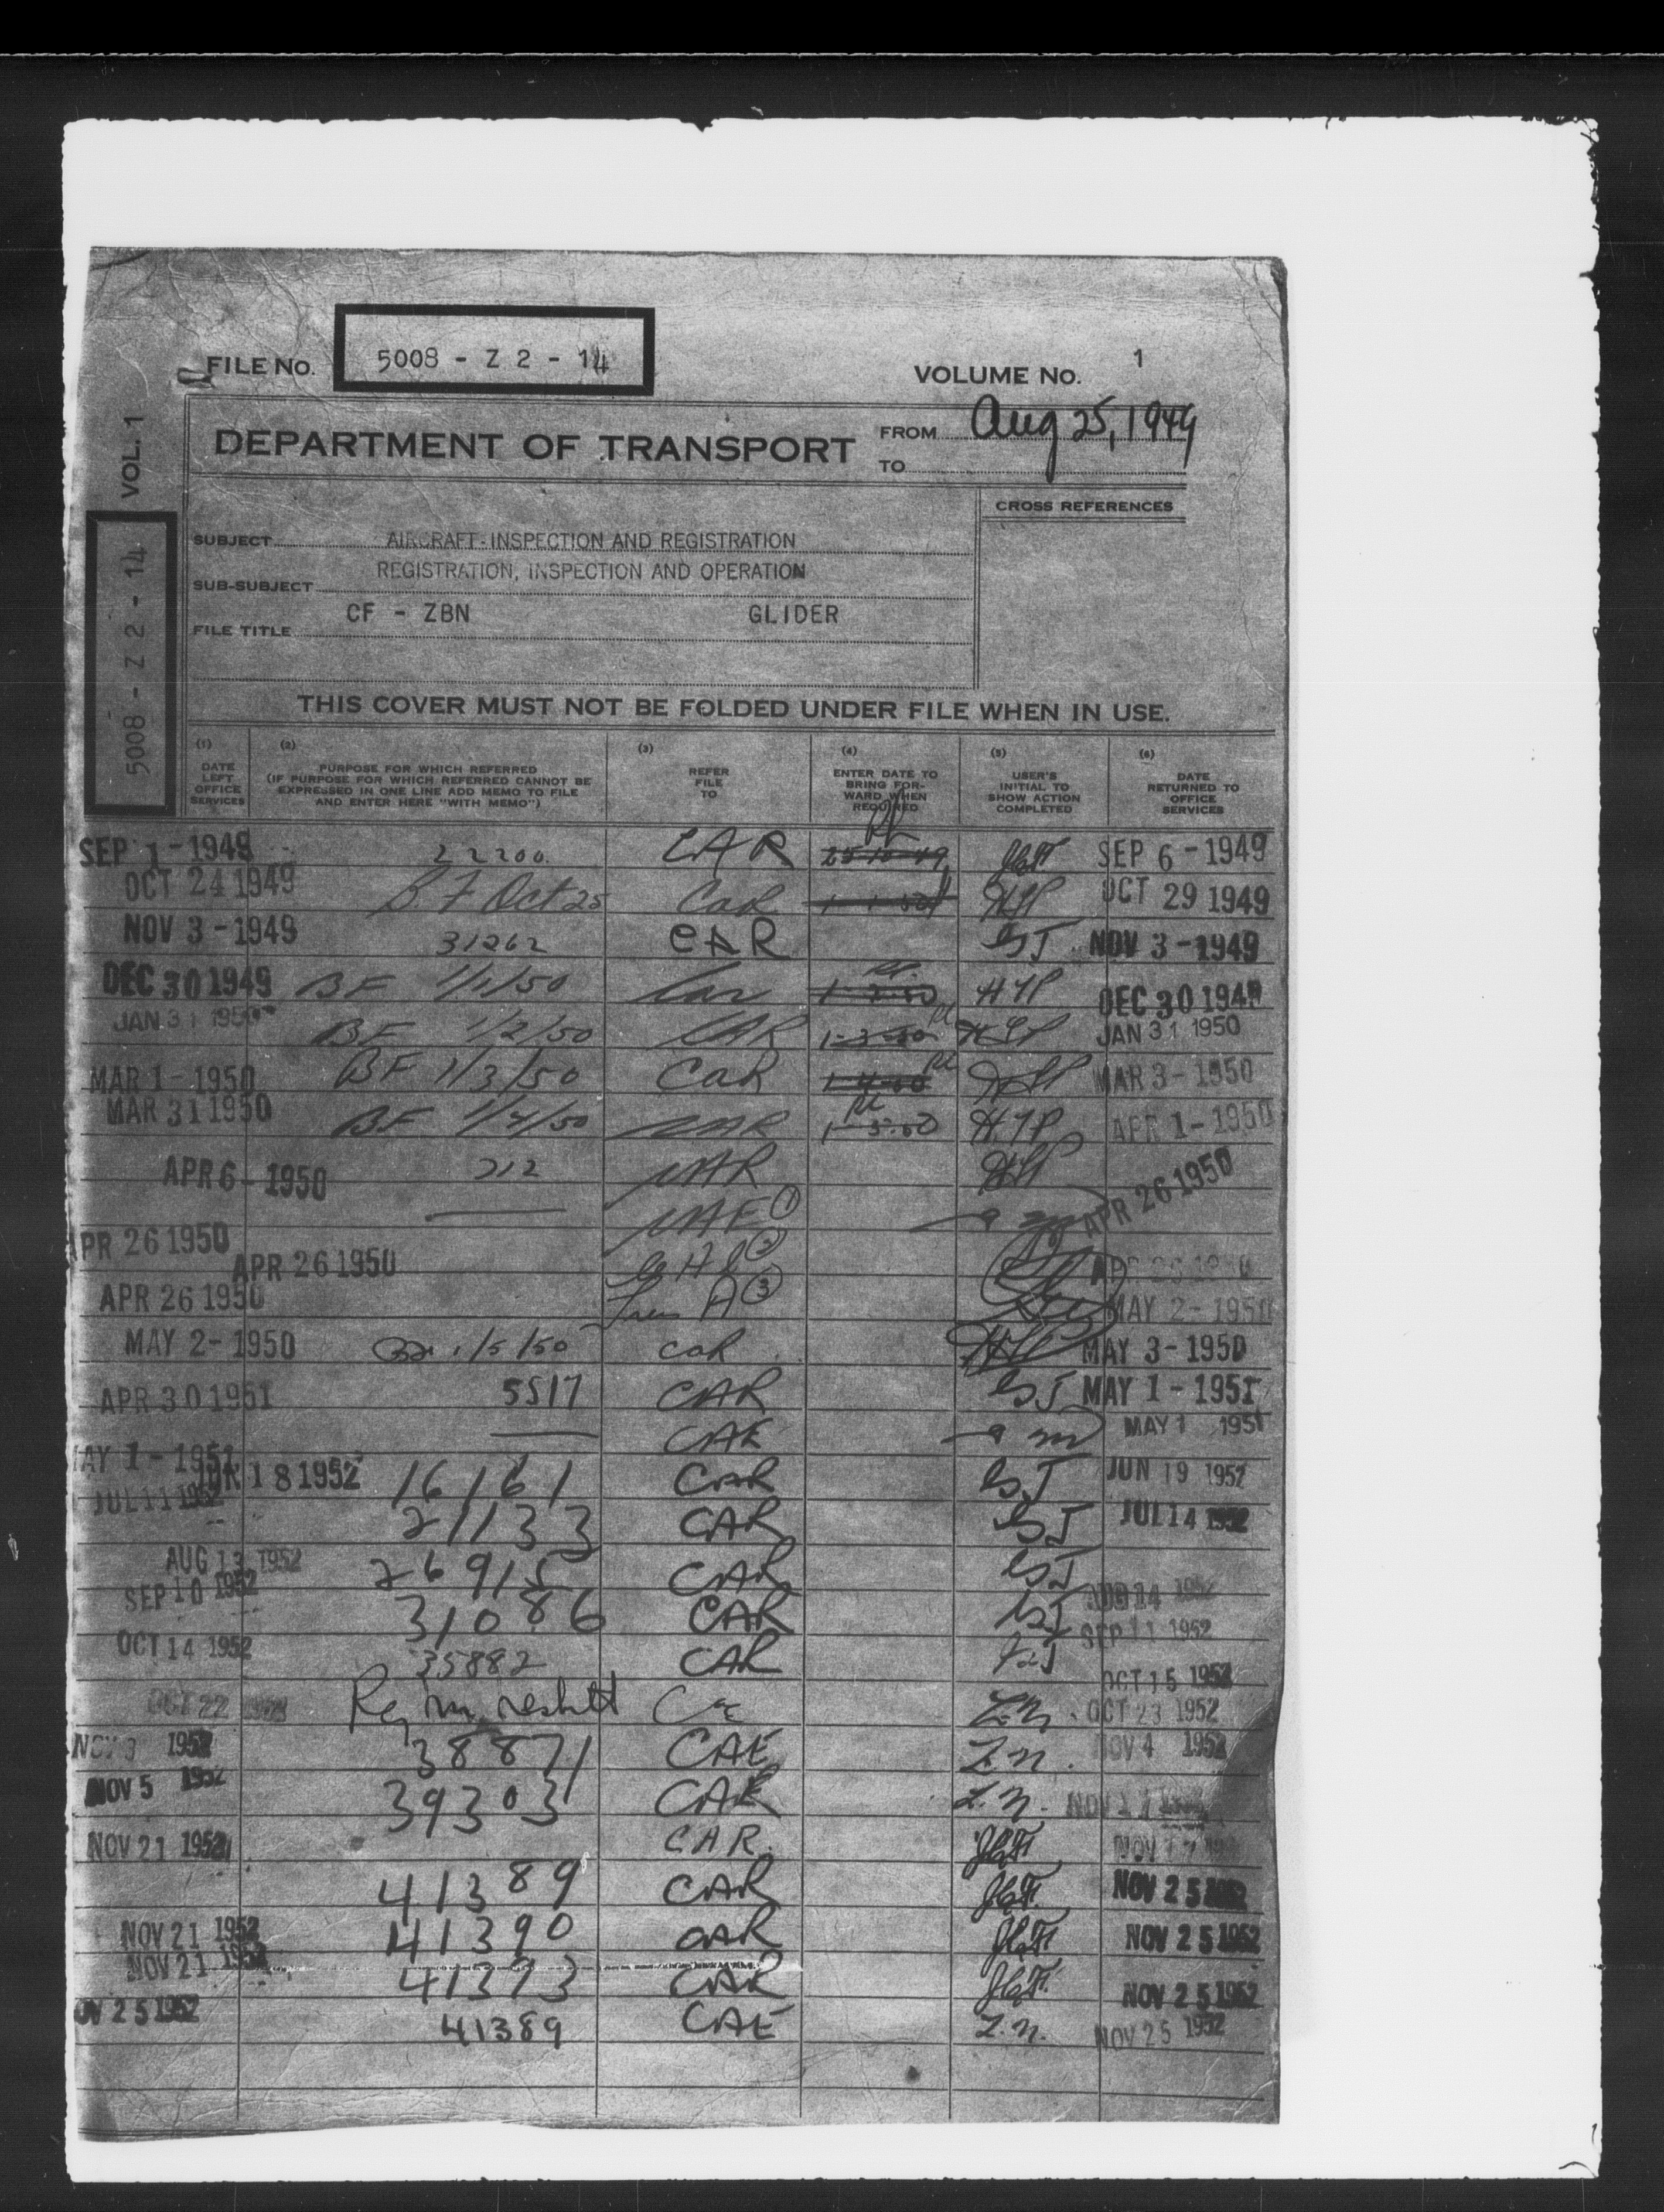 FILE No. 5008 - Z 2 - 14
VOLUME No. 1
VOL. 1
5008 - Z 2 - 14
DEPARTMENT OF TRANSPORT
FROM Aug 25, 1949
TO
CROSS REFERENCES
SUBJECT AIRCRAFT-INSPECTION AND REGISTRATION
SUB-SUBJECT REGISTRATION, INSPECTION AND OPERATION
FILE TITLE CF - ZBN GLIDER
THIS COVER MUST NOT BE FOLDED UNDER FILE WHEN IN USE.
(1) DATE LEFT OFFICE SERVICES
(2) PURPOSE FOR WHICH REFERRED (IF PURPOSE FOR WHICH REFERRED CANNOT BE EXPRESSED IN ONE LINE ADD MEMO TO FILE AND ENTER HERE "WITH MEMO")
(3) REFER FILE TO
(4) ENTER DATE TO BRING FORWARD WHEN REQUIRED
(5) USER'S INITIAL TO SHOW ACTION COMPLETED
(6) DATE RETURNED TO OFFICE SERVICES
SEP 1-1949 22200 CAR 25-10-49 SEP 6-1949
OCT 24 1949 B.F Oct 25 CAR 1-1-50 HYP OCT 29 1949
NOV 3-1949 31262 CAR GSJ NOV 3-1949
DEC 30 1949 BF 1/1/50 Car 1-2-50 HYP DEC 30 1949
JAN 31 1950 BF 1/2/50 CAR 1-3-50 HYP JAN 31 1950
MAR 1-1950 BF 1/3/50 CAR 1-4-50 HYP MAR 3-1950
MAR 31 1950 BF 1/4/50 CAR 1-5-50 HYP APR 1-1950
APR 6-1950 212 CAR HYP APR 26 1950
APR 26 1950 CAE 1
APR 26 1950 2
APR 26 1950 3 MAY 2-1950
MAY 2-1950 1/5/50 CAR HYP MAY 3-1950
APR 30 1951 5517 CAR GSJ MAY 1-1951
MAY 1-1951 CAE MAY 1 1951
JUN 18 1952 16161 CAR GSJ JUN 19 1952
JUL 11 1952 21133 CAR GSJ JUL 14 1952
AUG 13 1952 26915 CAR GSJ AUG 14 1952
SEP 10 1952 31086 CAR GSJ SEP 11 1952
OCT 14 1952 35882 CAR GSJ OCT 15 1952
OCT 22 Reg CAE L.N. OCT 23 1952
NOV 3 1952 38871 CAE L.N. NOV 4 1952
NOV 5 1952 39303 CAE L.N. NOV 17
NOV 21 1952 CAR. NOV 17
41389 CAR NOV 25 1952
NOV 21 1952 41390 CAR NOV 25 1952
NOV 21 1952 41393 CAR NOV 25 1952
NOV 25 1952 41389 CAE L.N. NOV 25 1952